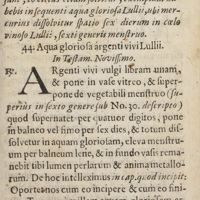 bebis in sequenti aqua gloriosa Lullii, ubi mer-
curius dissolvitur spatio sex dierum in cœlo
vinoso Lullii, sexti generis menstruo.
44. Aqua gloriosa argenti vivi Lullii.
In Testam. Novissimo.
℞. ARgenti vivi vulgi libram unam,
& pone in vase vitreo, & super-
pone de vegetabili menstruo (su-
perius in sexto genere sub No. 30. descripto)
quod supernatet per quatuor digitos, pone
in balneo vel fimo per sex dies, & totum dis-
solvetur in aquam gloriosam, eleva menstru-
um per balneum lene, & in fundo vasis rema-
nebit tibi lumen perlarum & anima metallo-
rum. De hoc intelleximus in cap. quod incipit:
Oportet nos cum eo incipere & cum eo fini-